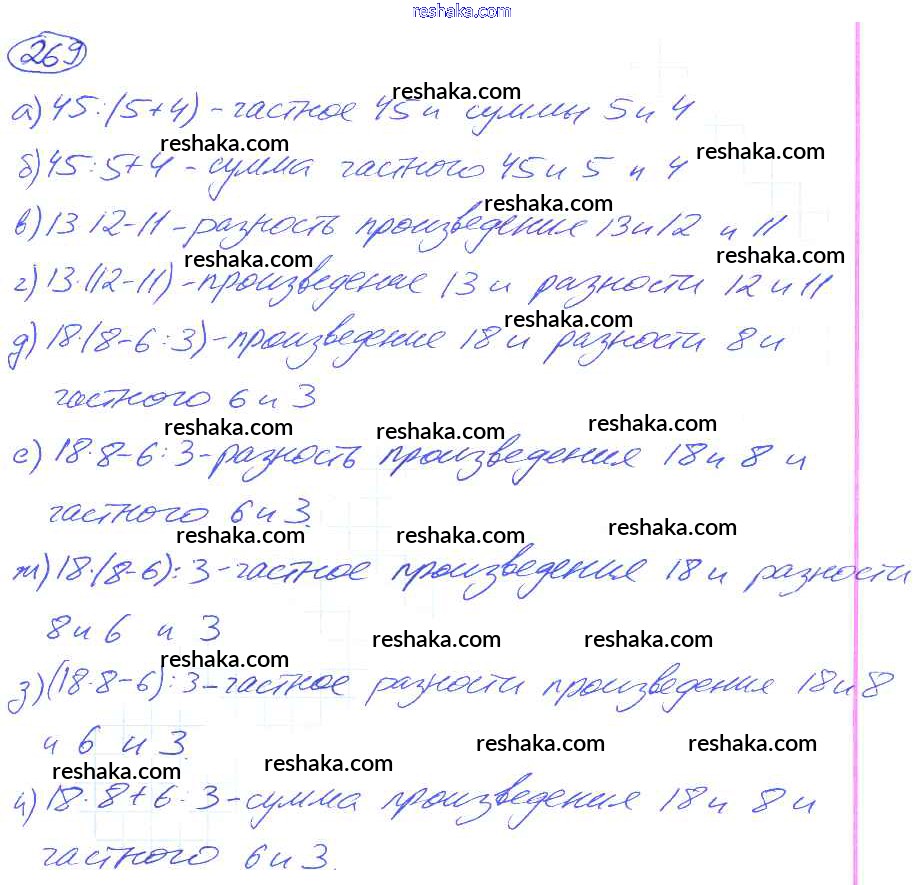 reshaka.com
269
reshaka.com
а) 45:(5+4) - частное 45 и суммы 5 и 4
reshaka.com reshaka.com
б) 45:5+4 - сумма частного 45 и 5 и 4
reshaka.com
в) 13 12-11 - разность произведения 13 и 12 и 11
reshaka.com reshaka.com
г) 13·(12-11) - произведение 13 и разности 12 и 11
reshaka.com
д) 18·(8-6:3) - произведение 18 и разности 8 и
частного 6 и 3
reshaka.com reshaka.com reshaka.com
е) 18·8-6:3 - разность произведения 18 и 8 и
частного 6 и 3.
reshaka.com reshaka.com reshaka.com
ж) 18·(8-6):3 - частное произведения 18 и разности
8 и 6 и 3
reshaka.com reshaka.com reshaka.com
з) (18·8-6):3 - частное разности произведения 18 и 8
и 6 и 3.
reshaka.com reshaka.com reshaka.com reshaka.com
и) 18·8+6:3 - сумма произведения 18 и 8 и
частного 6 и 3.